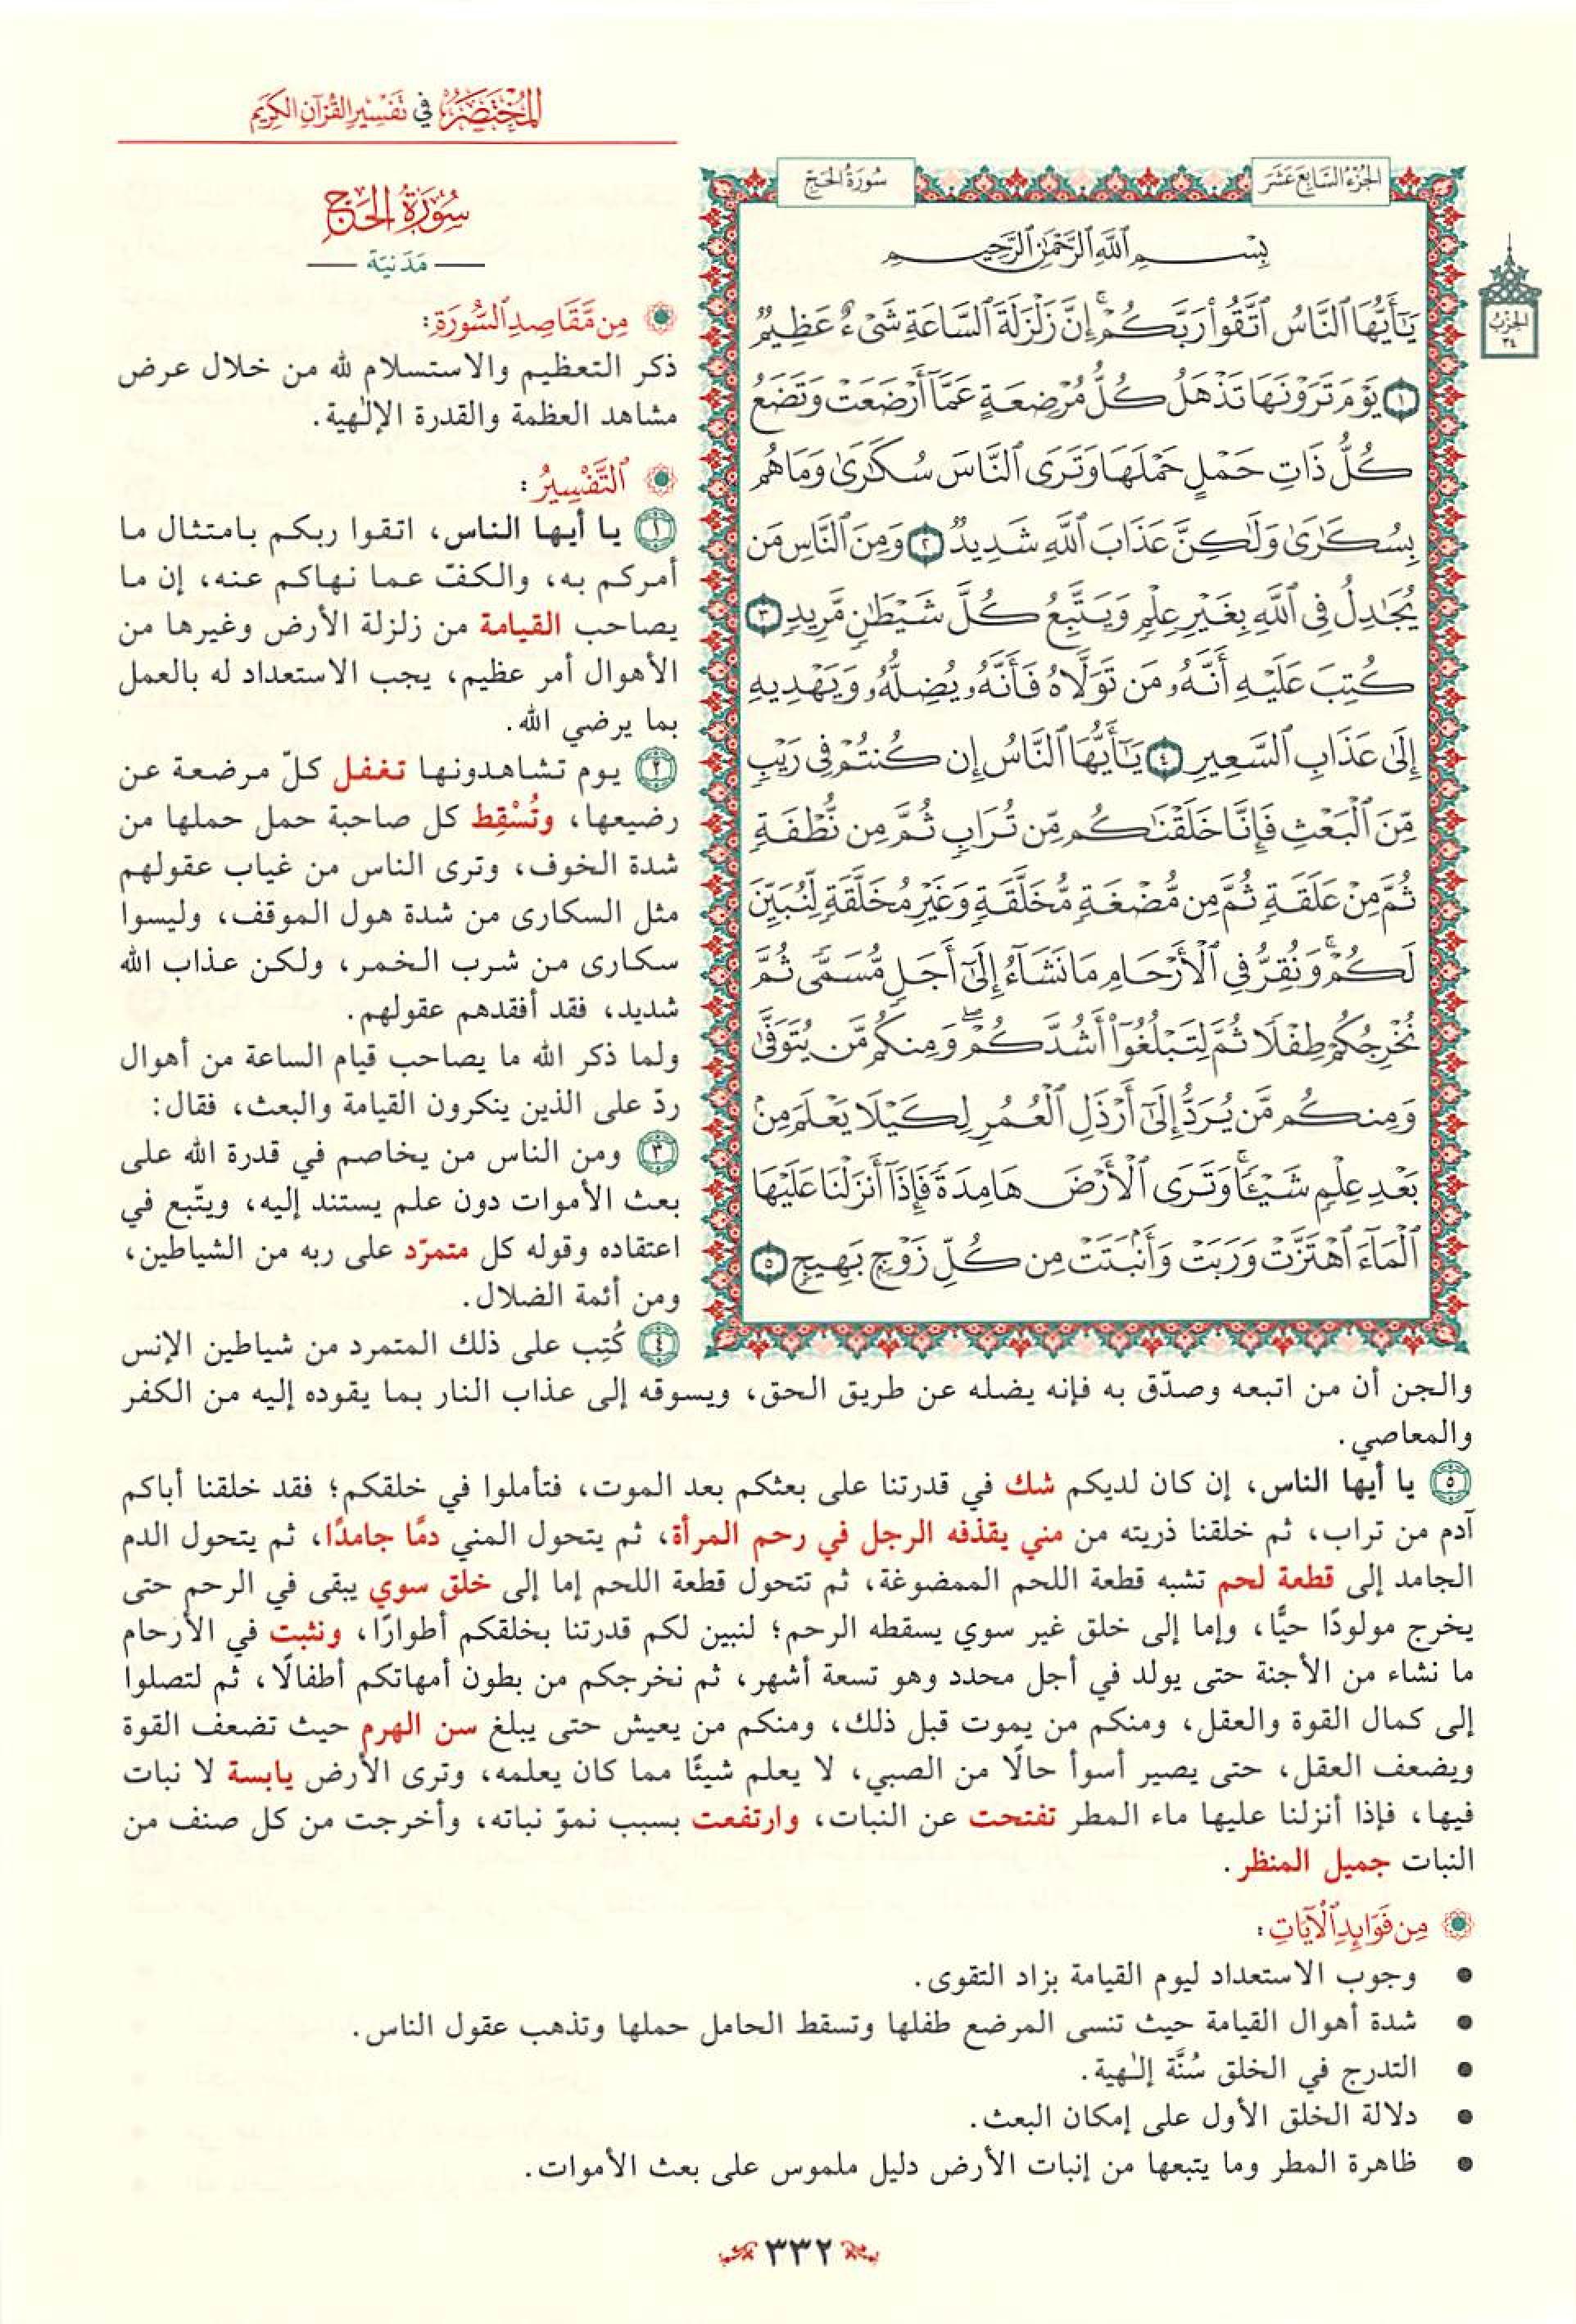 المختصر في تفسير القرآن الكريم
الجزء السابع عشر
سورة الحج
الحزب
٣٤
بِسْمِ ٱللَّهِ ٱلرَّحْمَٰنِ ٱلرَّحِيمِ
يَٰٓأَيُّهَا ٱلنَّاسُ ٱتَّقُوا۟ رَبَّكُمْ ۚ إِنَّ زَلْزَلَةَ ٱلسَّاعَةِ شَىْءٌ عَظِيمٌ
١ يَوْمَ تَرَوْنَهَا تَذْهَلُ كُلُّ مُرْضِعَةٍ عَمَّآ أَرْضَعَتْ وَتَضَعُ
كُلُّ ذَاتِ حَمْلٍ حَمْلَهَا وَتَرَى ٱلنَّاسَ سُكَٰرَىٰ وَمَا هُم
بِسُكَٰرَىٰ وَلَٰكِنَّ عَذَابَ ٱللَّهِ شَدِيدٌ ٢ وَمِنَ ٱلنَّاسِ مَن
يُجَٰدِلُ فِى ٱللَّهِ بِغَيْرِ عِلْمٍ وَيَتَّبِعُ كُلَّ شَيْطَٰنٍ مَّرِيدٍ ٣
كُتِبَ عَلَيْهِ أَنَّهُۥ مَن تَوَلَّاهُ فَأَنَّهُۥ يُضِلُّهُۥ وَيَهْدِيهِ
إِلَىٰ عَذَابِ ٱلسَّعِيرِ ٤ يَٰٓأَيُّهَا ٱلنَّاسُ إِن كُنتُمْ فِى رَيْبٍ
مِّنَ ٱلْبَعْثِ فَإِنَّا خَلَقْنَٰكُم مِّن تُرَابٍ ثُمَّ مِن نُّطْفَةٍ
ثُمَّ مِنْ عَلَقَةٍ ثُمَّ مِن مُّضْغَةٍ مُّخَلَّقَةٍ وَغَيْرِ مُخَلَّقَةٍ لِّنُبَيِّنَ
لَكُمْ ۚ وَنُقِرُّ فِى ٱلْأَرْحَامِ مَا نَشَآءُ إِلَىٰٓ أَجَلٍ مُّسَمًّى ثُمَّ
نُخْرِجُكُمْ طِفْلًا ثُمَّ لِتَبْلُغُوٓا۟ أَشُدَّكُمْ ۖ وَمِنكُم مَّن يُتَوَفَّىٰ
وَمِنكُم مَّن يُرَدُّ إِلَىٰٓ أَرْذَلِ ٱلْعُمُرِ لِكَيْلَا يَعْلَمَ مِنۢ
بَعْدِ عِلْمٍ شَيْـًٔا ۚ وَتَرَى ٱلْأَرْضَ هَامِدَةً فَإِذَآ أَنزَلْنَا عَلَيْهَا
ٱلْمَآءَ ٱهْتَزَّتْ وَرَبَتْ وَأَنۢبَتَتْ مِن كُلِّ زَوْجٍۭ بَهِيجٍ ٥
سُورَةُ الحَجِّ
مَدَنيّة
مِن مَّقَاصِدِ ٱلسُّورَةِ:
ذكر التعظيم والاستسلام لله من خلال عرض
مشاهد العظمة والقدرة الإلٰهية.
ٱلتَّفْسِيرُ:
١ يا أيها الناس، اتقوا ربكم بامتثال ما
أمركم به، والكفّ عما نهاكم عنه، إن ما
يصاحب القيامة من زلزلة الأرض وغيرها من
الأهوال أمر عظيم، يجب الاستعداد له بالعمل
بما يرضي الله.
٢ يوم تشاهدونها تغفل كلّ مرضعة عن
رضيعها، وتُسْقِط كل صاحبة حمل حملها من
شدة الخوف، وترى الناس من غياب عقولهم
مثل السكارى من شدة هول الموقف، وليسوا
سكارى من شرب الخمر، ولكن عذاب الله
شديد، فقد أفقدهم عقولهم.
ولما ذكر الله ما يصاحب قيام الساعة من أهوال
ردّ على الذين ينكرون القيامة والبعث، فقال:
٣ ومن الناس من يخاصم في قدرة الله على
بعث الأموات دون علم يستند إليه، ويتّبع في
اعتقاده وقوله كل متمرّد على ربه من الشياطين،
ومن أئمة الضلال.
٤ كُتِب على ذلك المتمرد من شياطين الإنس
والجن أن من اتبعه وصدّق به فإنه يضله عن طريق الحق، ويسوقه إلى عذاب النار بما يقوده إليه من الكفر
والمعاصي.
٥ يا أيها الناس، إن كان لديكم شك في قدرتنا على بعثكم بعد الموت، فتأملوا في خلقكم؛ فقد خلقنا أباكم
آدم من تراب، ثم خلقنا ذريته من مني يقذفه الرجل في رحم المرأة، ثم يتحول المني دمًا جامدًا، ثم يتحول الدم
الجامد إلى قطعة لحم تشبه قطعة اللحم الممضوغة، ثم تتحول قطعة اللحم إما إلى خلق سوي يبقى في الرحم حتى
يخرج مولودًا حيًّا، وإما إلى خلق غير سوي يسقطه الرحم؛ لنبين لكم قدرتنا بخلقكم أطوارًا، ونثبت في الأرحام
ما نشاء من الأجنة حتى يولد في أجل محدد وهو تسعة أشهر، ثم نخرجكم من بطون أمهاتكم أطفالًا، ثم لتصلوا
إلى كمال القوة والعقل، ومنكم من يموت قبل ذلك، ومنكم من يعيش حتى يبلغ سن الهرم حيث تضعف القوة
ويضعف العقل، حتى يصير أسوأ حالًا من الصبي، لا يعلم شيئًا مما كان يعلمه، وترى الأرض يابسة لا نبات
فيها، فإذا أنزلنا عليها ماء المطر تفتحت عن النبات، وارتفعت بسبب نموّ نباته، وأخرجت من كل صنف من
النبات جميل المنظر.
مِن فَوَائِدِ ٱلْآيَاتِ:
● وجوب الاستعداد ليوم القيامة بزاد التقوى.
● شدة أهوال القيامة حيث تنسى المرضع طفلها وتسقط الحامل حملها وتذهب عقول الناس.
● التدرج في الخلق سُنَّة إلٰهية.
● دلالة الخلق الأول على إمكان البعث.
● ظاهرة المطر وما يتبعها من إنبات الأرض دليل ملموس على بعث الأموات.
٣٣٢